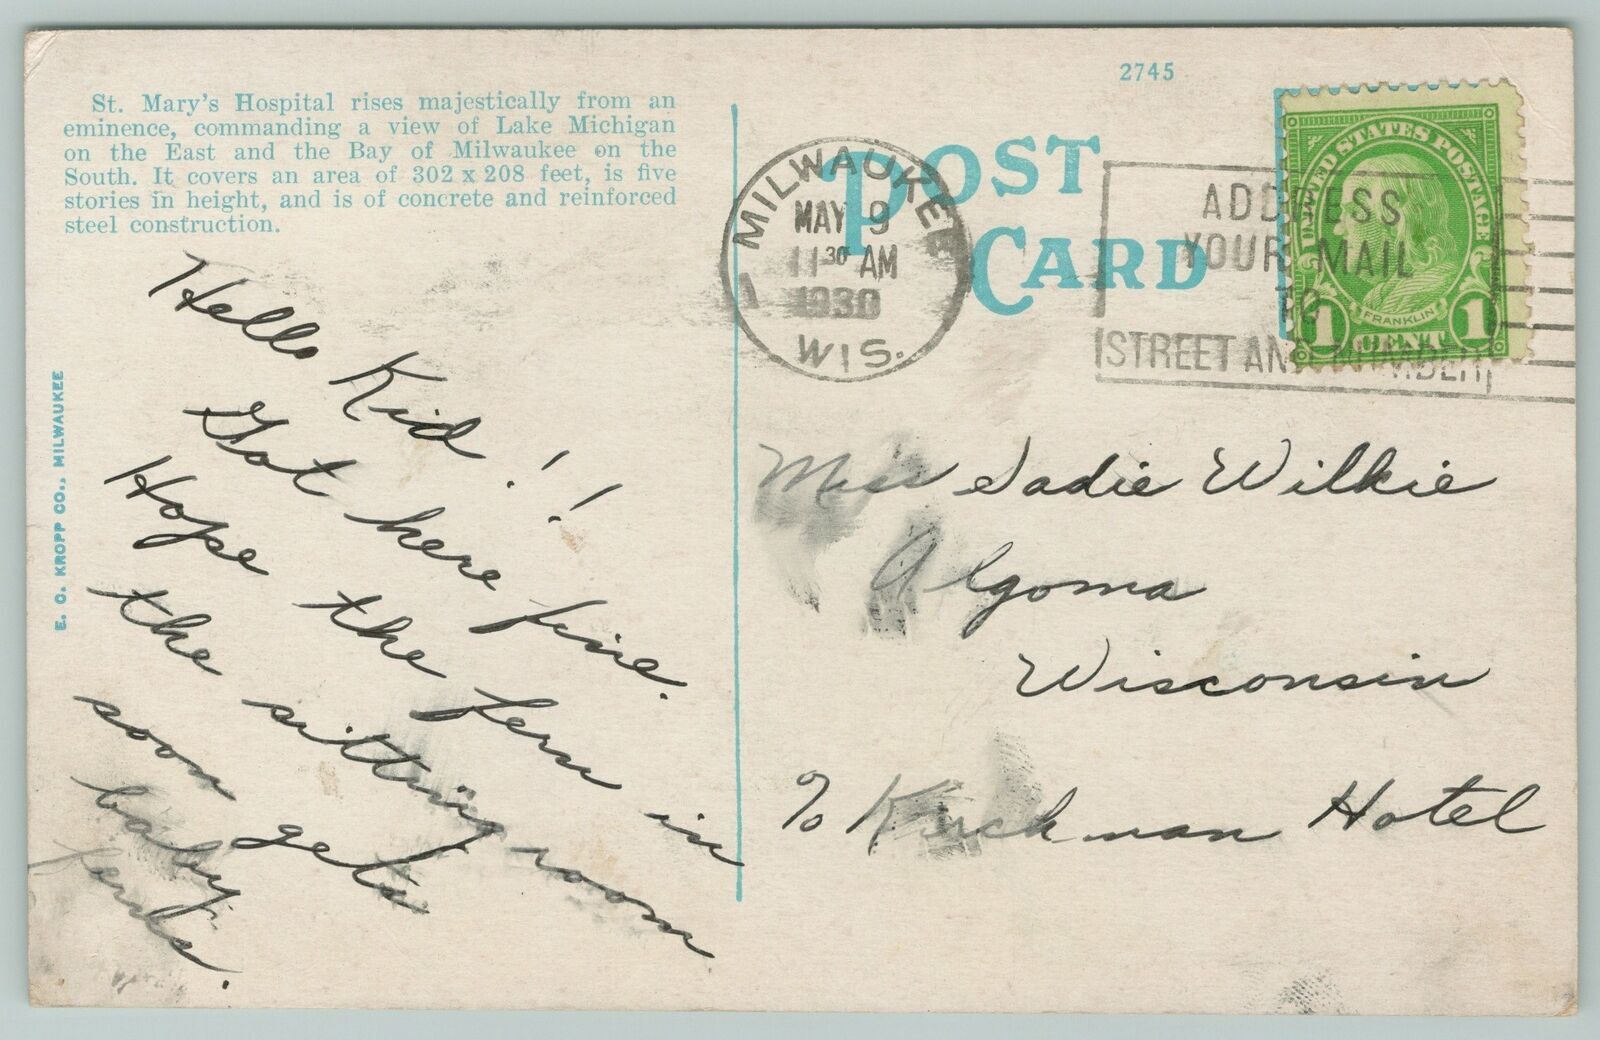 2745
St. Mary's Hospital rises majestically from an
eminence, commanding a view of Lake Michigan
on the East and the Bay of Milwaukee on the
South. It covers an area of 302 x 208 feet, is five
stories in height, and is of concrete and reinforced
steel construction.
E. C. KROPP CO., MILWAUKEE
POST
CARD
MILWAUKEE
MAY 9
11 30 AM
1930
1
WIS.
ADDRESS
YOUR MAIL
TO
STREET AND NUMBER
UNITED STATES POSTAGE
FRANKLIN
1 CENT 1
Hello Kid!!
Got here fine.
Hope the fern in
the sitting room
soon gets
baby
ferns.
Miss Sadie Wilkie
Algoma
Wisconsin
% Kirchman Hotel